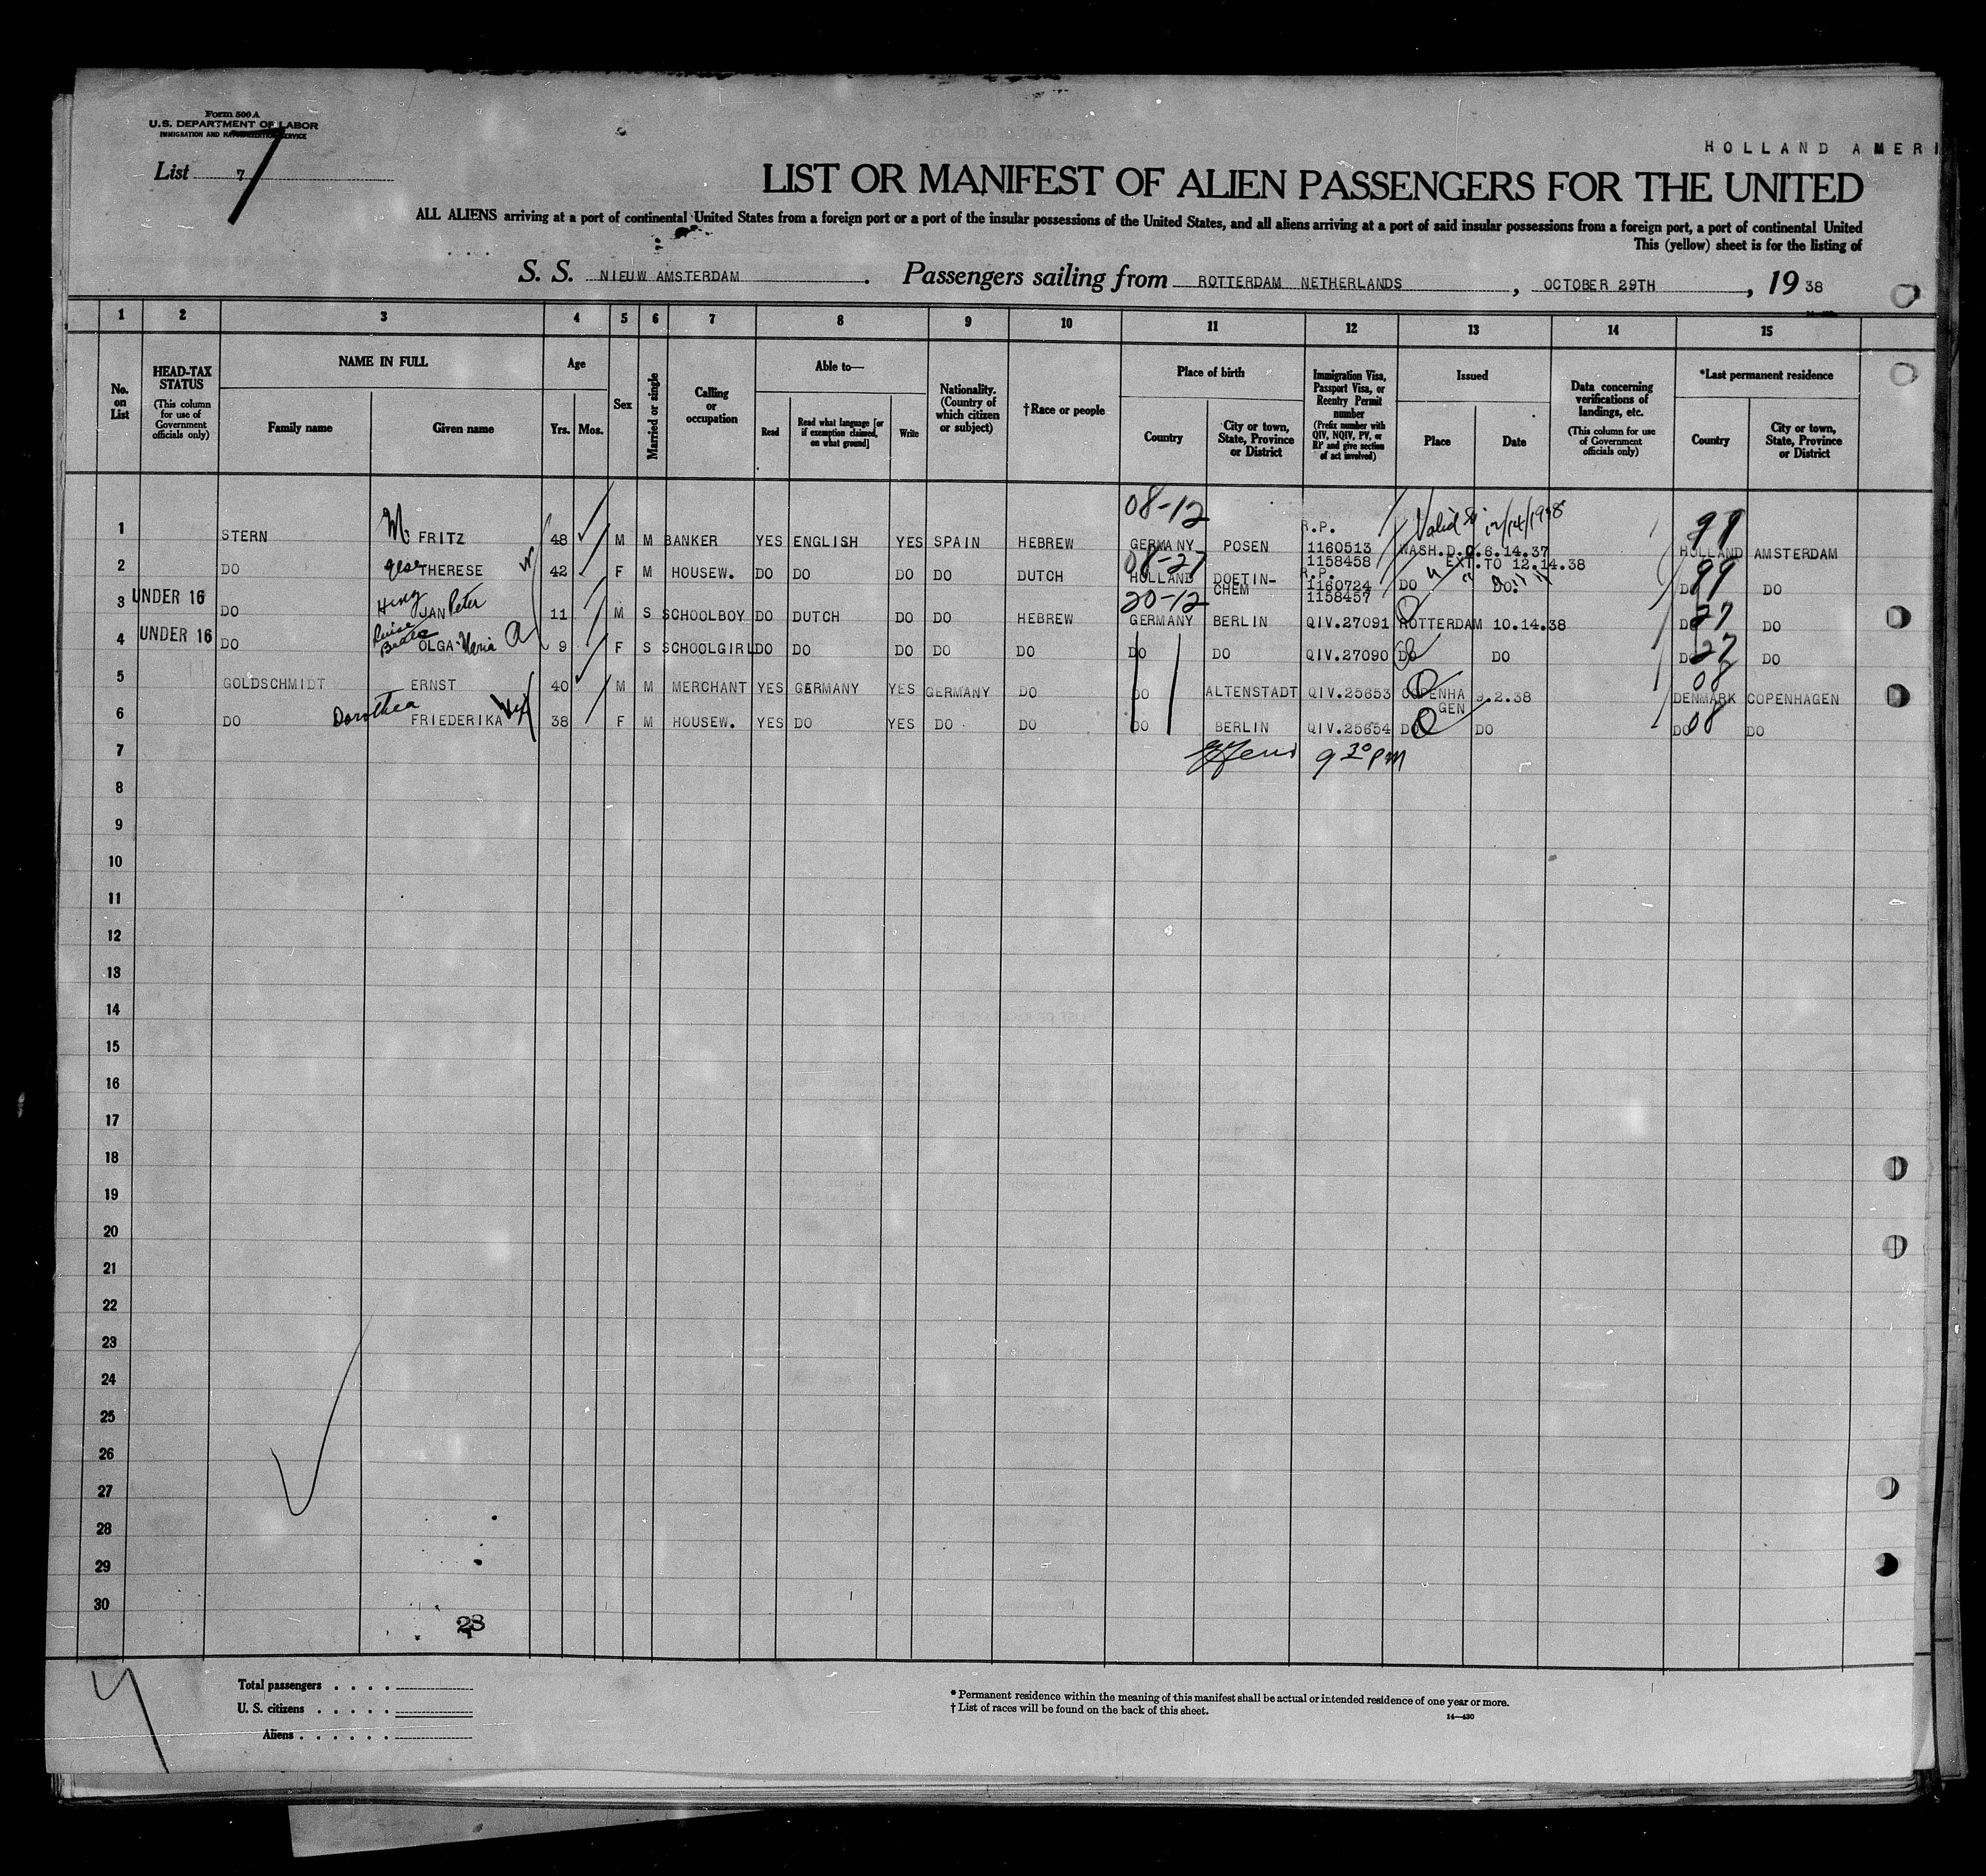 Form 500 A
U.S. DEPARTMENT OF LABOR
IMMIGRATION AND NATURALIZATION SERVICE
HOLLAND AMERI
List 7
7
LIST OR MANIFEST OF ALIEN PASSENGERS FOR THE UNITED
ALL ALIENS arriving at a port of continental United States from a foreign port or a port of the insular possessions of the United States, and all aliens arriving at a port of said insular possessions from a foreign port, a port of continental United
This (yellow) sheet is for the listing of
S. S. NIEUW AMSTERDAM. Passengers sailing from ROTTERDAM NETHERLANDS, OCTOBER 29TH, 19 38
1 2 3 4 5 6 7 8 9 10 11 12 13 14 15
No. on List
HEAD-TAX STATUS (This column for use of Government officials only)
NAME IN FULL
Family name
Given name
Age
Yrs. Mos.
Sex
Married or single
Calling or occupation
Able to—
Read
Read what language [or if exemption claimed, on what ground]
Write
Nationality. (Country of which citizen or subject)
†Race or people
Place of birth
Country
City or town, State, Province or District
Immigration Visa, Passport Visa, or Reentry Permit number (Prefix number with QIV, NQIV, PV, or RP and give section of act involved)
Issued
Place
Date
Data concerning verifications of landings, etc. (This column for use of Government officials only)
*Last permanent residence
Country
City or town, State, Province or District
08-12 Valid to 12/14/1938 99
1 STERN M FRITZ 48 M M BANKER YES ENGLISH YES SPAIN HEBREW GERMANY POSEN R.P. 1160513 1158458 WASH.D.C. 6.14.37 EXT.TO 12.14.38 HOLLAND AMSTERDAM
08-27 99
2 DO THERESE 42 F M HOUSEW. DO DO DO DO DUTCH HOLLAND DOETIN-CHEM R.P. 1160724 1158457 DO " DO " " " DO DO
20-12 27
3 UNDER 16 DO JAN Peter 11 M S SCHOOLBOY DO DUTCH DO DO HEBREW GERMANY BERLIN QIV.27091 ROTTERDAM 10.14.38 DO DO
27
4 UNDER 16 DO OLGA-Maria 9 F S SCHOOLGIRL DO DO DO DO DO DO DO QIV.27090 DO DO DO DO
08
5 GOLDSCHMIDT ERNST 40 M M MERCHANT YES GERMANY YES GERMANY DO DO ALTENSTADT QIV.25653 COPENHAGEN 9.2.38 DENMARK COPENHAGEN
08
6 DO Dorothea FRIEDERIKA 38 F M HOUSEW. YES DO YES DO DO DO BERLIN QIV.25654 DO DO DO DO
7 9 30 PM
8
9
10
11
12
13
14
15
16
17
18
19
20
21
22
23
24
25
26
27
28
29
30
28
Total passengers . . . .
U. S. citizens . . . . .
Aliens . . . . . .
* Permanent residence within the meaning of this manifest shall be actual or intended residence of one year or more.
† List of races will be found on the back of this sheet.
14—430